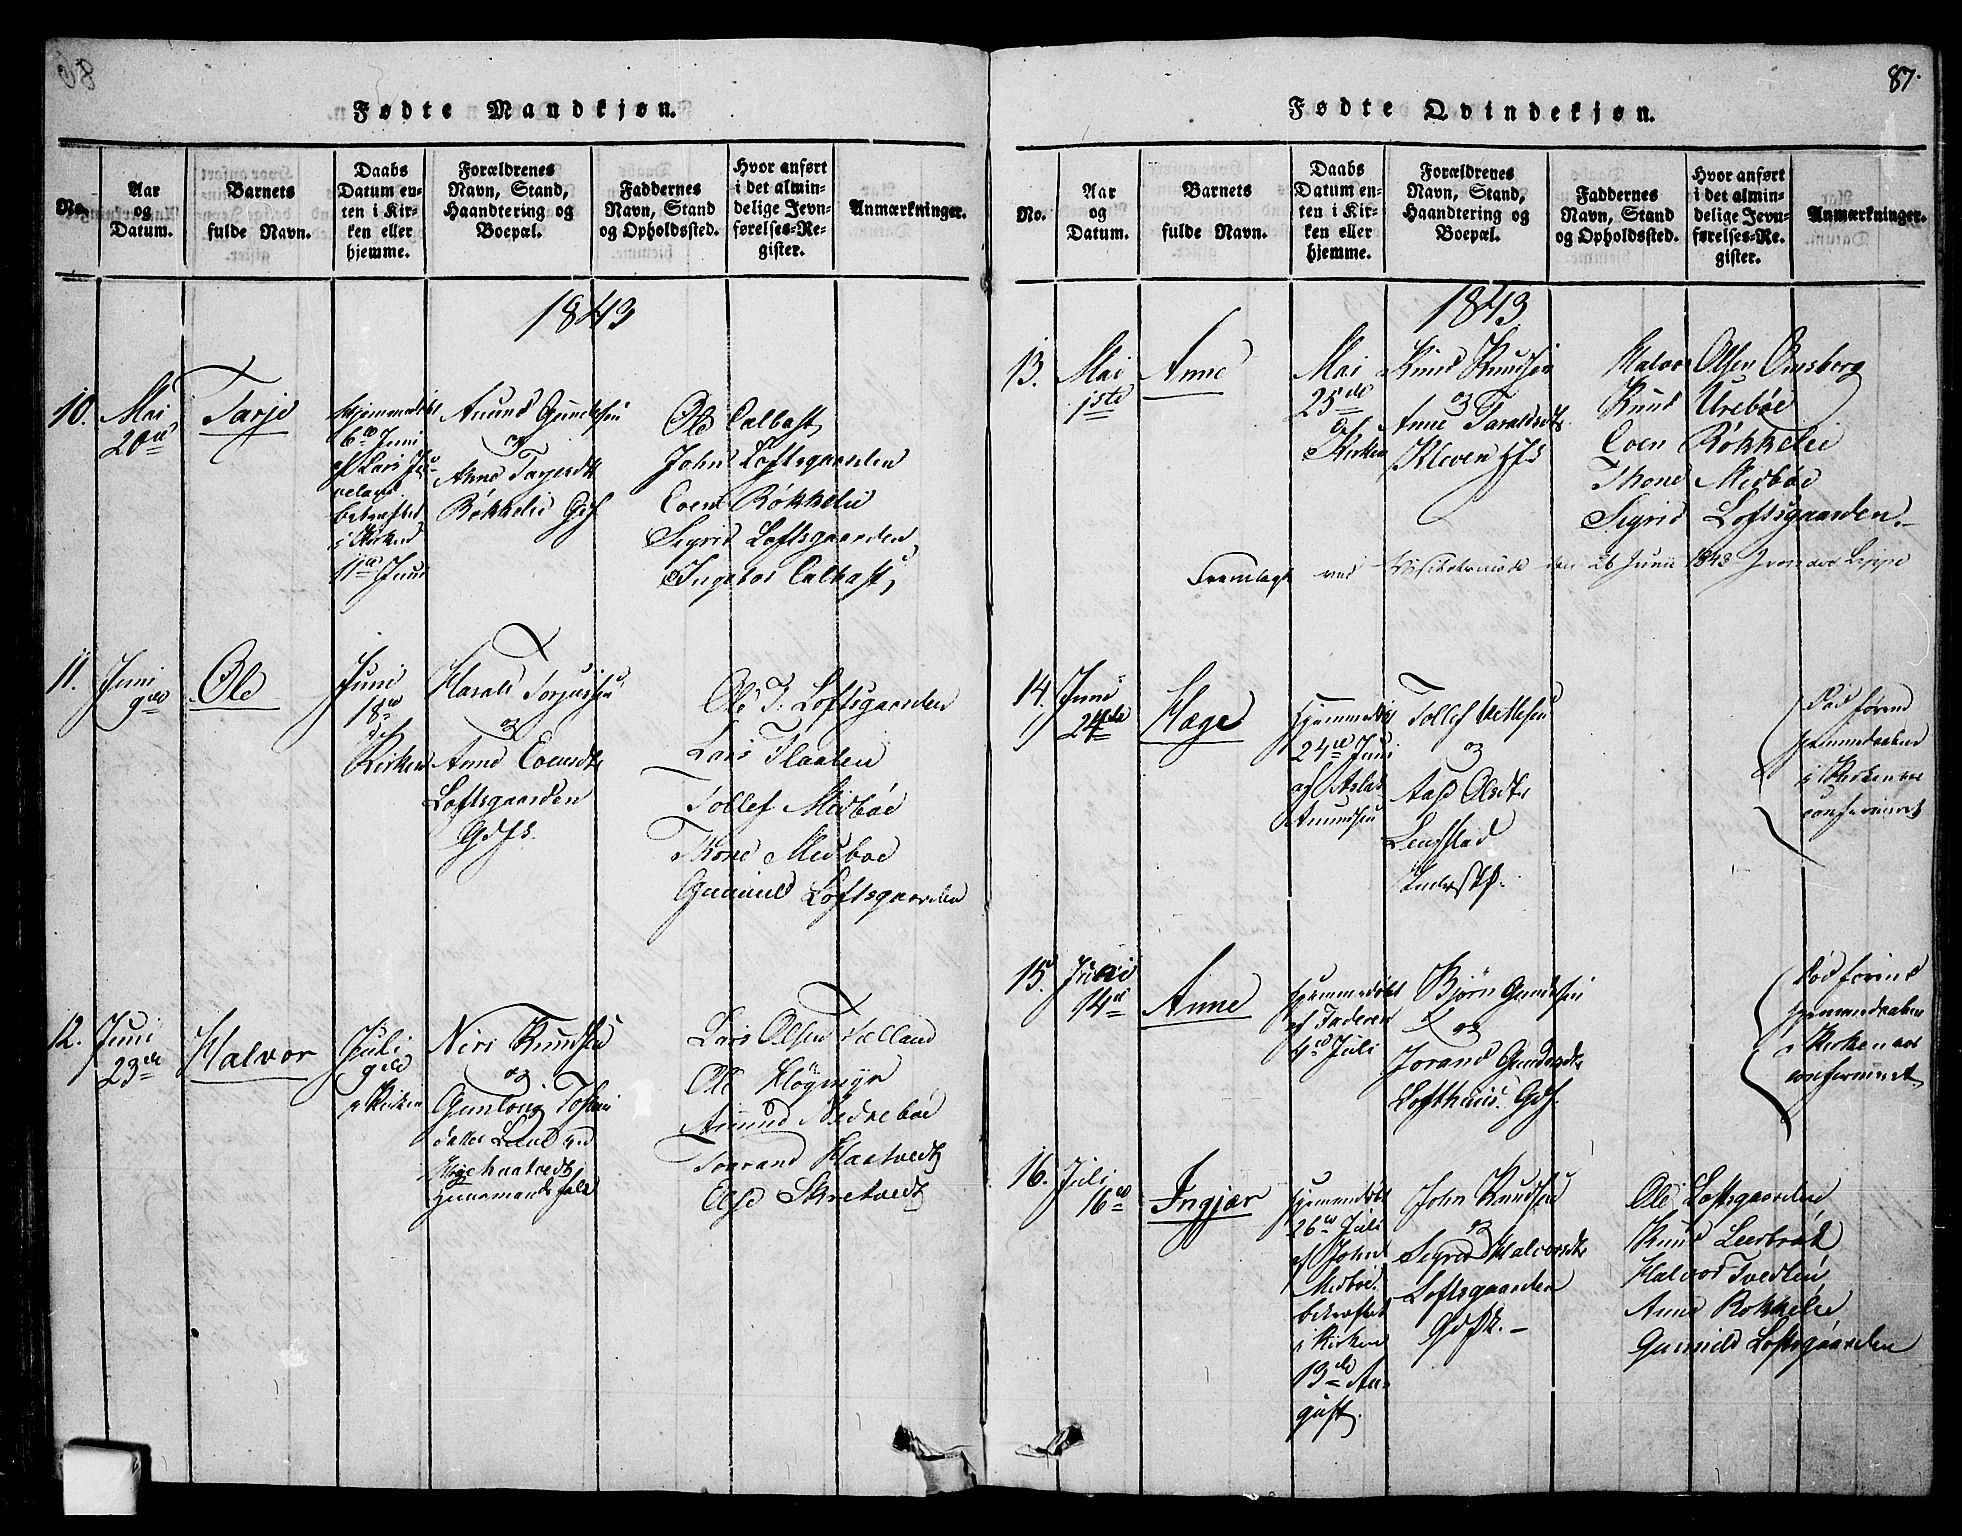 Fødte Mandkjøn.
No.
Aar
og
Datum.
Barnets
fulde Navn.
Daabs
Datum en-
ten i Kir-
ken eller
hjemme.
Forældrenes
Navn, Stand,
Haandtering og
Boepæl.
Faddernes
Navn, Stand
og Opholdssted.
Hvor anført
i det almin-
delige Jevn-
førelses-Re-
gister.
Anmærkninger.
1843
10.
Mai
20de
Tarje
hjemmedøbt
6te Juni
af Lars
bekræftet
i Kirken
11te Juni
Amund Gundersen
og
Anne Tarjesdtr
Røkkelie Gdf.
Ole
John Loftsgaarden
Coen Røkkelie
Sigrid Loftsgaarden
Ingebor
11.
Juni
9de
Ole
Juni
18de
Kirken
Harald Torjussen
og
Anne Coensdtr
Loftsgaarden
Gdfs.
Ole T. Loftsgaarden
Lars Flaaten
Tollef Midbøe
Thone Midboe
Gunnild Loftsgaarden
12.
Juni
23de
Halvor
Juli
9de
i Kirken
Nirs Knudsen
og
Gunloug
Lars Olsen Helland
Ole Høgmyr
Amund Nedrebøe
Torrand Haatvedt
Else Skretvedt
87.
Fødte Qvindekjøn.
No.
Aar
og
Datum.
Barnets
fulde Navn.
Daabs
Datum en-
ten i Kir-
ken eller
hjemme.
Forældrenes
Navn, Stand,
Haandtering og
Boepæl.
Faddernes
Navn, Stand
og Opholdssted.
Hvor anført
i det almin-
delige Jevn-
førelses-Re-
gister.
Anmærkninger.
1843
13.
Mai
1ste
Anne
Mai
25de
Kirken
Knud Knudsen
og
Anne Taraldsdtr
Kleven
Halvor Olsen Omsborg
Knud Urebøe
Coen Røkkelie
Thone Midbøe
Sigrid Loftsgaarden.
Fremlagt ved den 26 Junii 1843
14.
Juni
24de
Hæge
hjemmedøbt
24de Juni
af Aslak
Amundsen
Tollef Vetlesen
og
Aase Olsdtr
Død førend
hjemmedaaben
i Kirken var
confirmeret
15.
Juni
14de
Anne
hjemmedøbt
af Faderen
4de Juli
Bjørn Gundersen
og
Jorand Gundersdtr
Lofthuus. Gdf.
Død førend
hjemmedaaben
i Kirken var
confirmeret
16.
Juli
16de
Ingjær
hjemmedøbt
26de Juli
af John
Midboe.
bekræftet
i Kirken
13de Au-
gust.
John Knudsen
og
Sigrid Halvorsdtr
Loftsgaarden
Ole Loftsgaarden
Knud Leerbræk
Halvor Tvedten
Anne Rokkelie
Gunnild Loftsgaarden